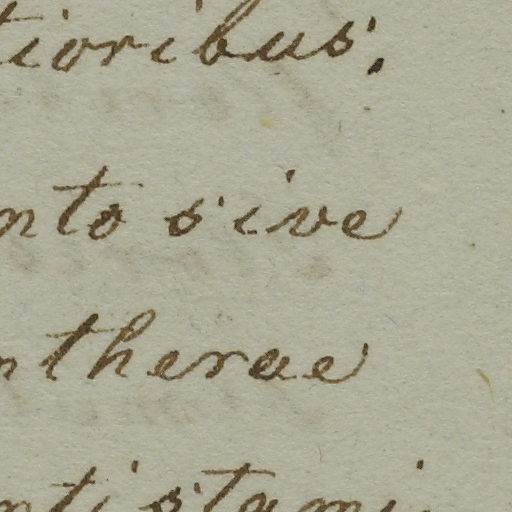 tioribus.
nto sive
ntherae
nti stami